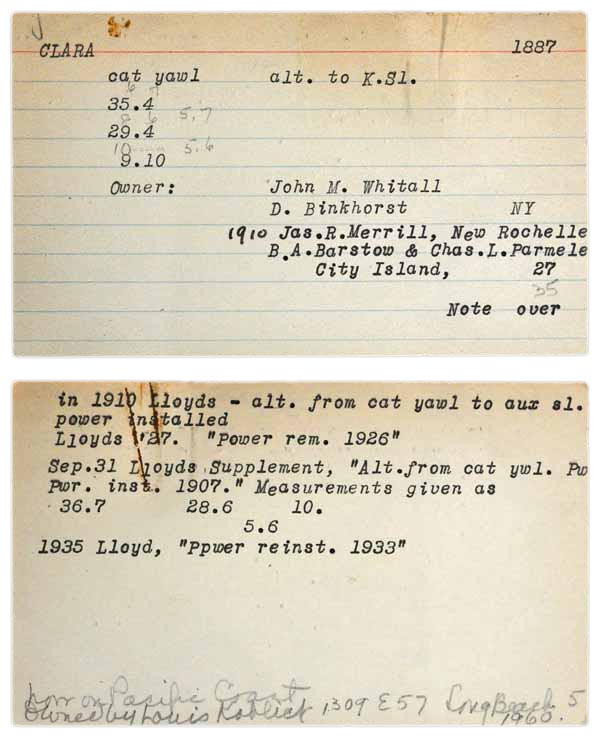 CLARA 1887
cat yawl alt. to K.Sl.
6 7
35.4
8 6 5.7
29.4
10 5.6
9.10
Owner: John M. Whitall
D. Binkhorst NY
1910 Jas.R.Merrill, New Rochelle
B.A.Barstow & Chas.L.Parmele
City Island, 27
35
Note over
in 1910 Lloyds - alt. from cat yawl to aux sl.
power installed
Lloyds '27. "Power rem. 1926"
Sep.31 Lloyds Supplement, "Alt.from cat ywl. Pw
Pwr. inst. 1907." Measurements given as
36.7 28.6 10.
5.6
1935 Lloyd, "Ppwer reinst. 1933"
now on Pacific Coast
Owned by Louis 1309 E 57 Long Beach 5
1960.